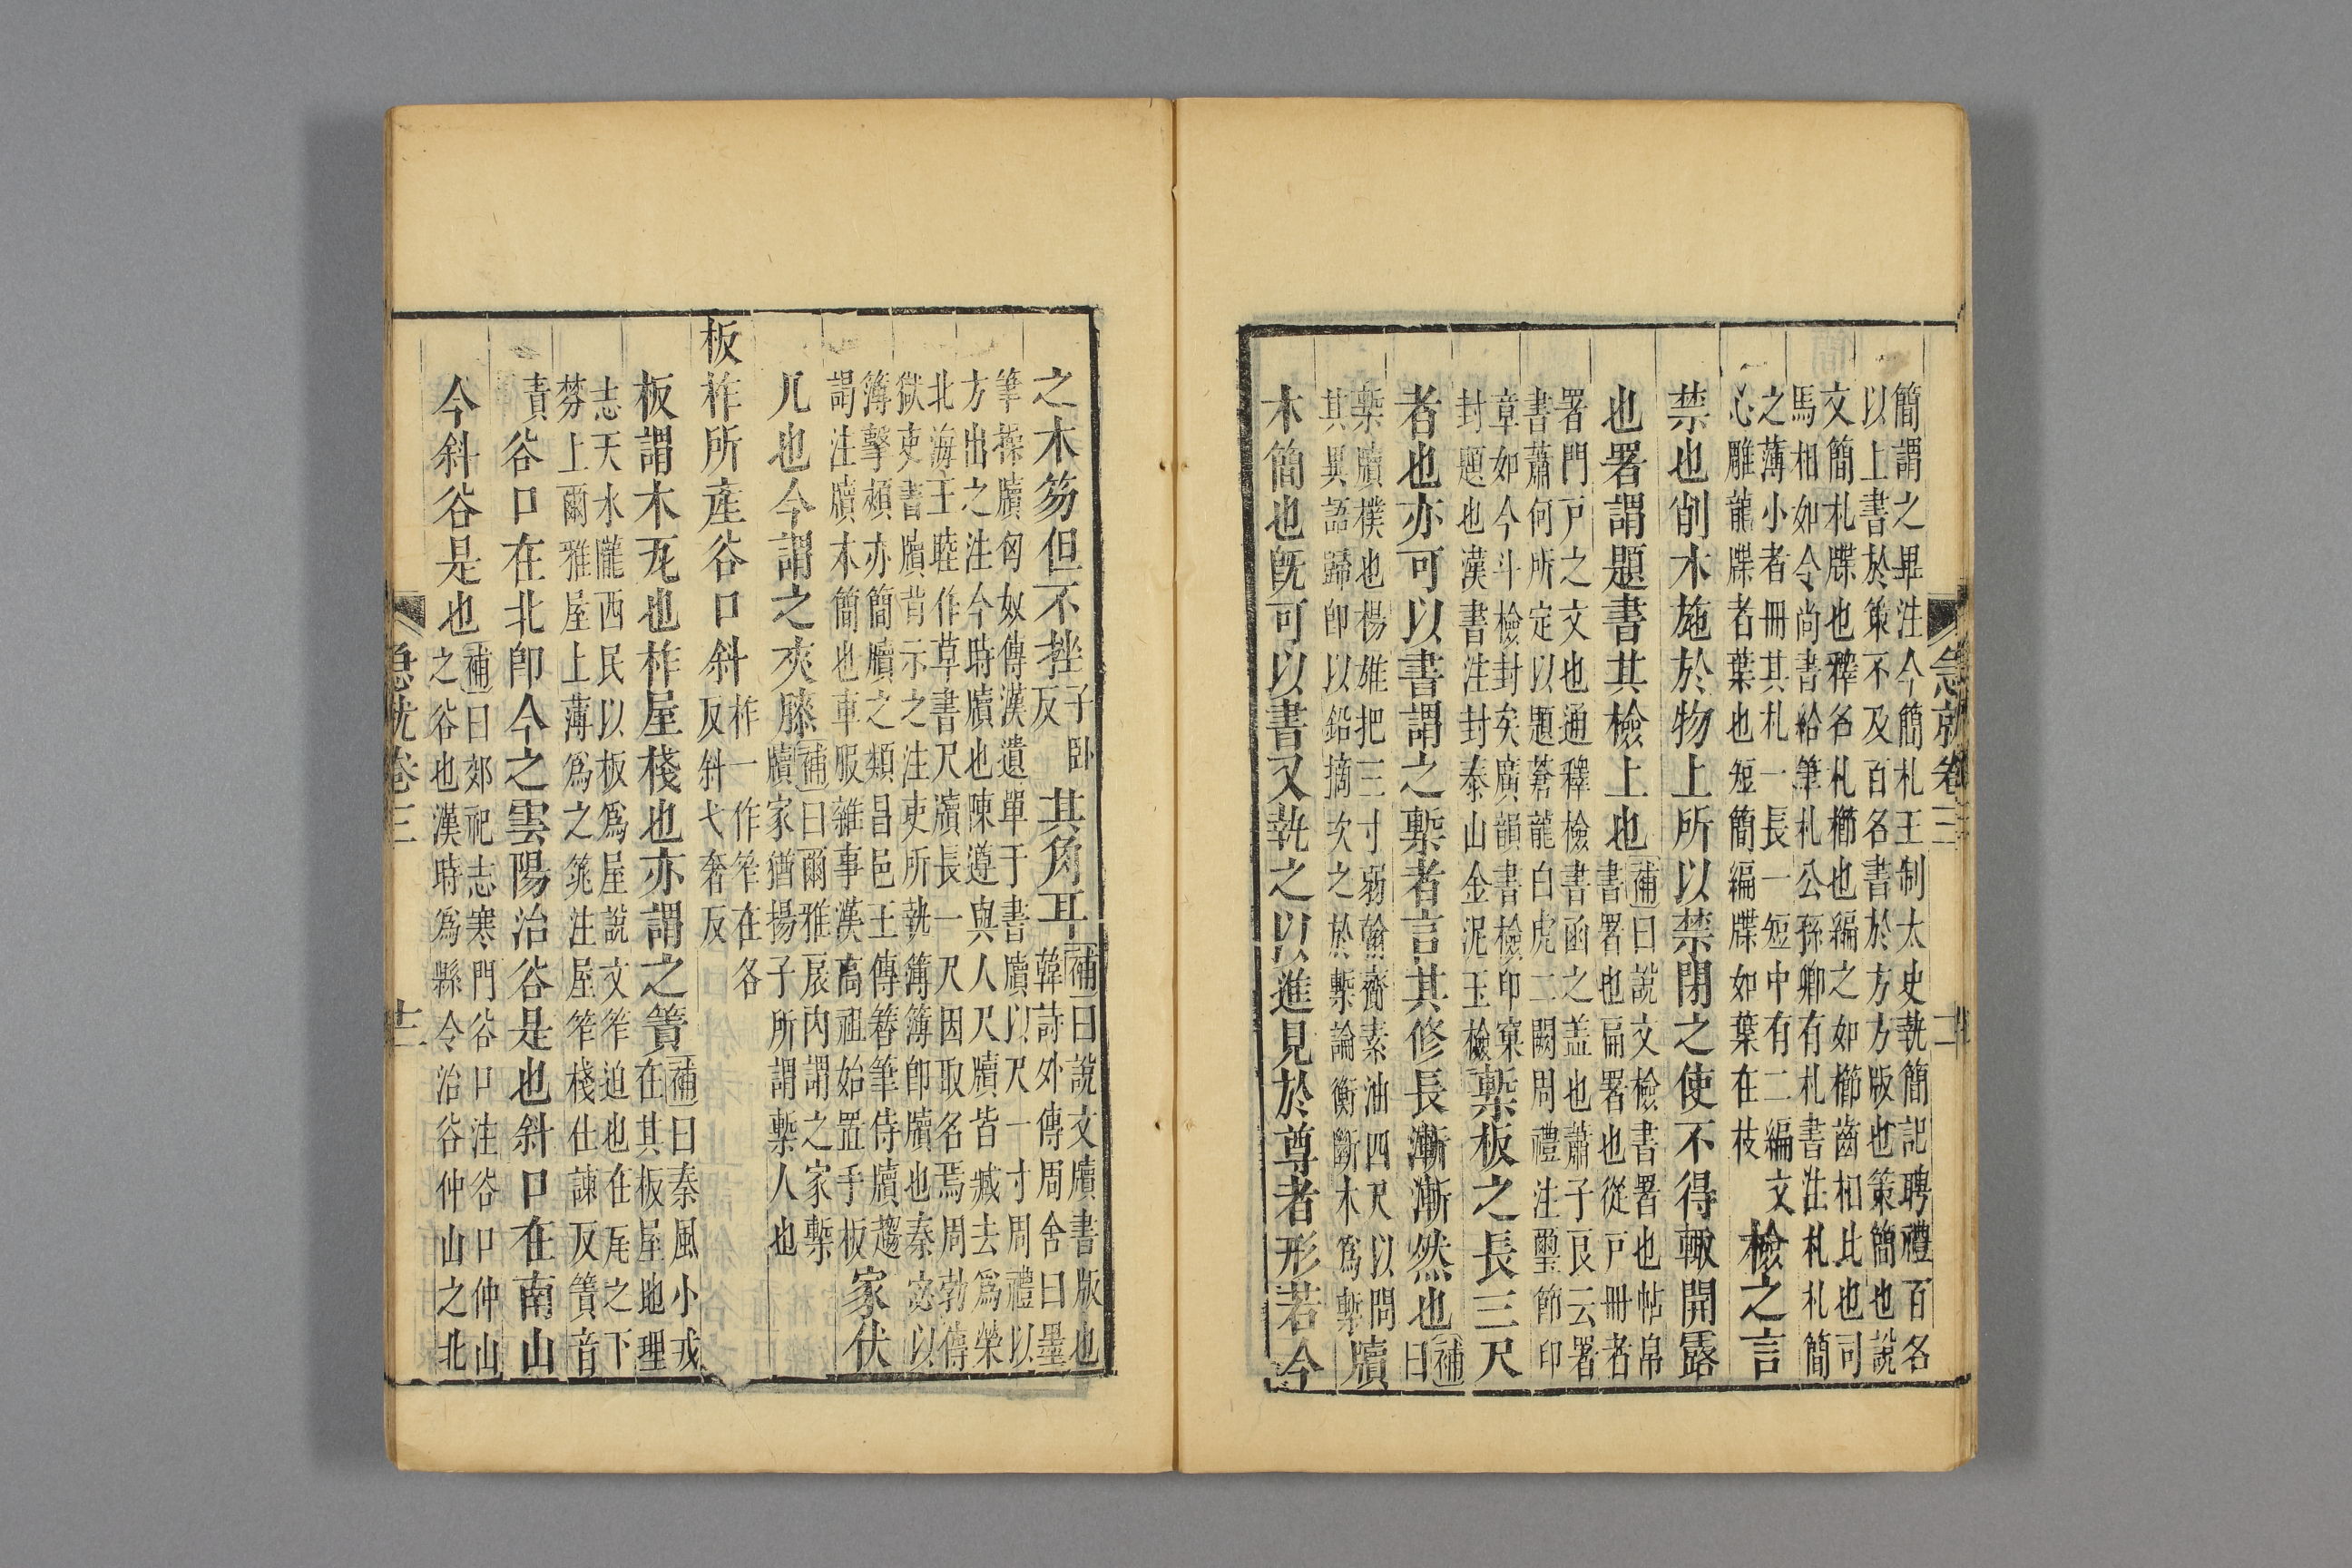 急就卷三
簡謂之畢注今簡札王制太史執簡記聘禮百名
以上書於策不及百名書於方方版也策簡也說
文簡札牒也釋名札櫛也編之如櫛齒相比也司
馬相如令尚書給筆札公孫卿有札書注札札簡
之薄小者冊其札一長一短中有二編文
心雕龍牒者葉也短簡編牒如葉在枝
檢之言
禁也削木施於物上所以禁閉之使不得輒開露
也署謂題書其檢上也
補曰說文檢書署也帖帛
書署也扁署也從戶冊者
署門戶之文也通釋檢書函之蓋也蕭子良云署
書蕭何所定以題蒼龍白虎二闕周禮注璽節印
章如今斗檢封矣廣韻書檢印窠
封題也漢書注封泰山金泥玉檢
槧板之長三尺
者也亦可以書謂之槧者言其修長漸漸然也
補曰
槧牘樸也楊雄把三寸弱翰齎素油四尺以問
其異語歸即以鉛摘次之於槧論衡斷木為槧
牘
木簡也既可以書又執之以進見於尊者形若今
之木笏但不挫
子卧
反
其角耳
補曰說文牘書版也
韓詩外傳周舍曰墨
筆操牘匈奴傳漢遺單于書牘以尺一寸周禮以
方出之注今時牘也陳遵與人尺牘皆臧去為榮
北海王睦作草書尺牘長一尺因取名焉周勃傳
獄吏書牘背示之注吏所執簿簿即牘也秦宓以
簿擊頰亦簡牘之類昌邑王傳簪筆侍牘趨
謁注牘木簡也車服雜事漢高祖始置手板
家伏
几也今謂之夾膝
補曰爾雅扆內謂之家槧
牘家猶揚子所謂槧人也
板柞所産谷口斜
柞一作笮在各
反斜弋奢反
板謂木瓦也柞屋棧也亦謂之簀
補曰秦風小戎
在其板屋地理
志天水隴西民以板為屋說文笮迫也在瓦之下
棼上爾雅屋上薄為之筄注屋笮棧仕諫反簀音
責
谷口在北即今之雲陽治谷是也斜口在南山
今斜谷是也
補曰郊祀志寒門谷口注谷口仲山
之谷也漢時為縣今治谷仲山之北
急就卷三